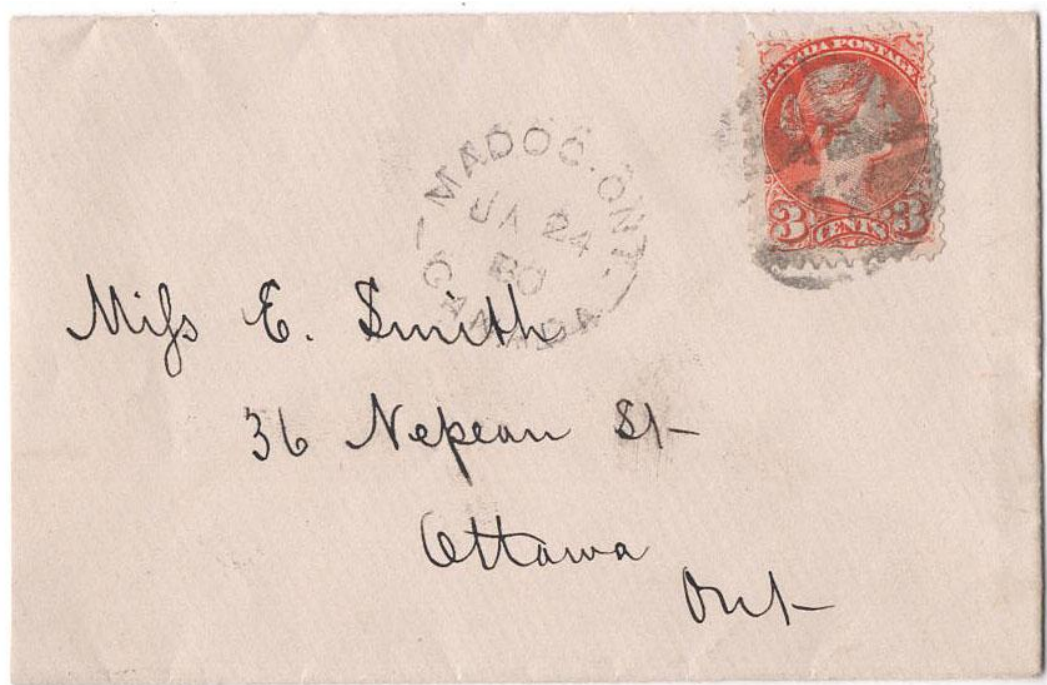 CANADA POSTAGE
3 CENTS 3
MADOC. ONT
JA 24
80
CANADA
Miſs E. Smith
36 Nepean St
Ottawa
Ont